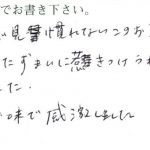 でお書き下さい。
い見慣れないこのお
たたずまいに惹きつけられ
した.
味で感激しました